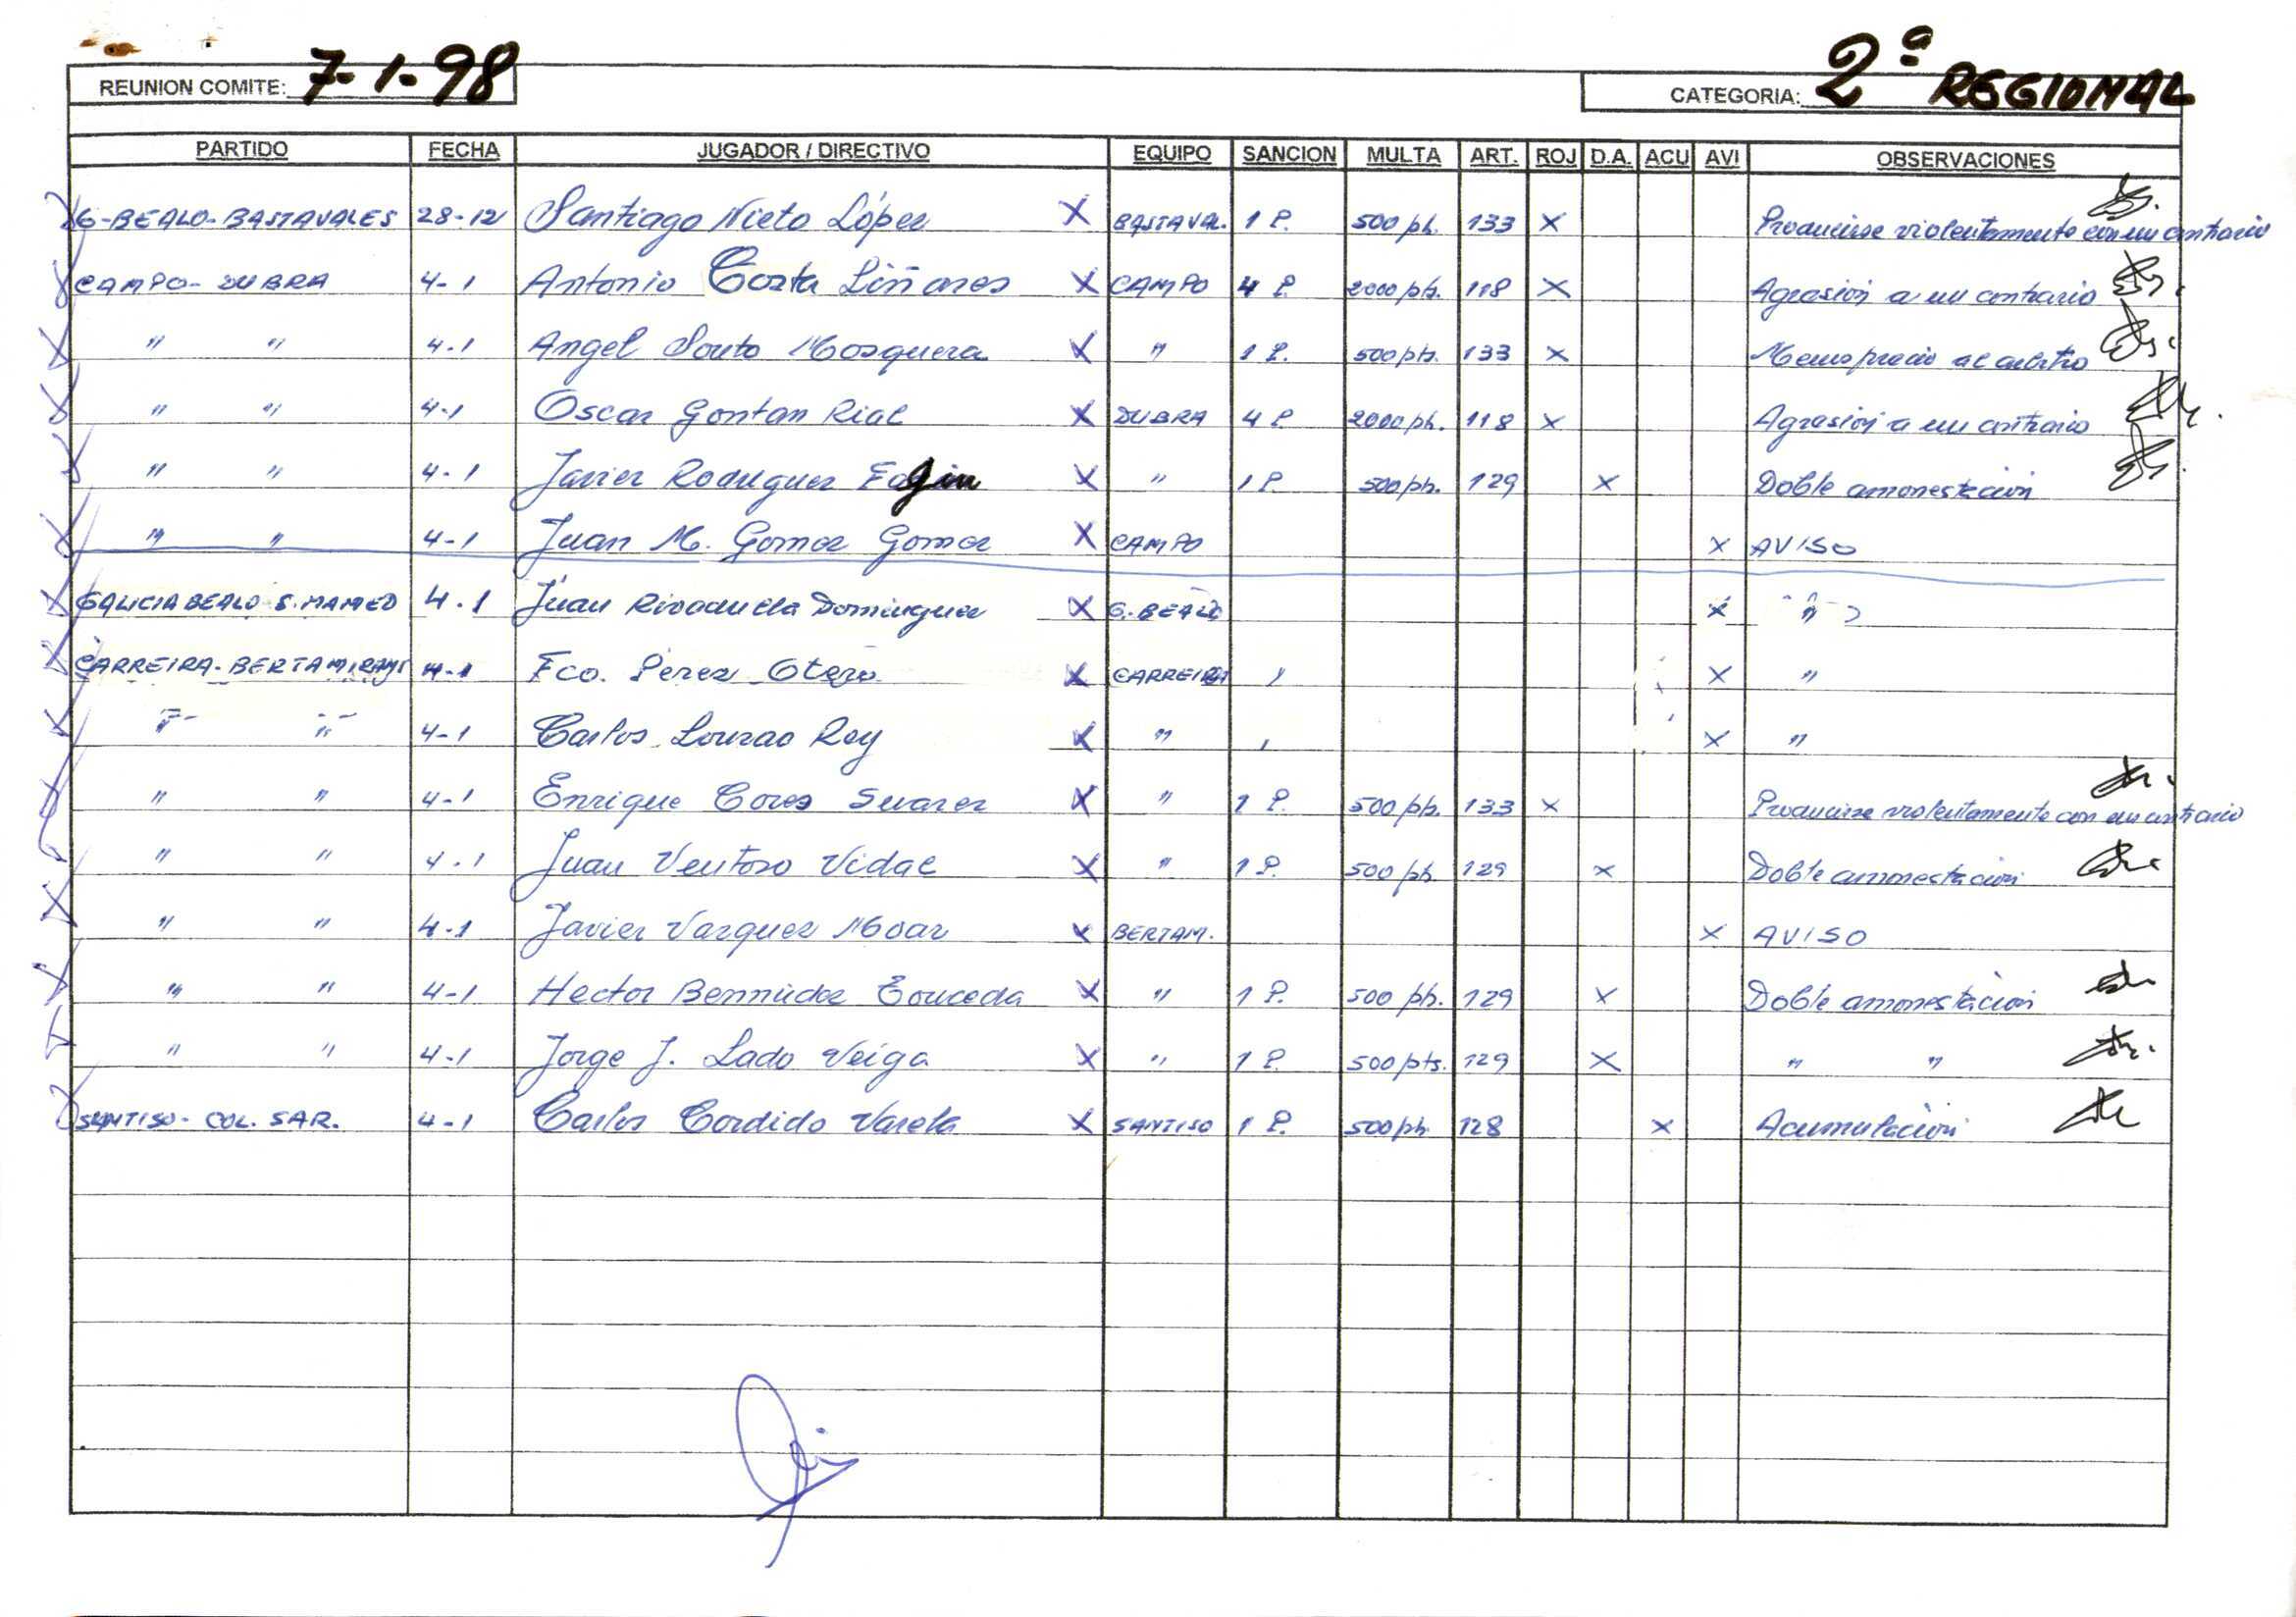 REUNION COMITE: 7-1-98 CATEGORIA: 2ª REGIONAL
PARTIDO FECHA JUGADOR / DIRECTIVO EQUIPO SANCION MULTA ART. ROJ D.A. ACU AVI OBSERVACIONES
G-BEALO-BASTAVALES 28-12 Santiago Nieto López X BASTAVAL. 1 P. 500 pts. 133 X Producirse violentamente con un contrario
CAMPO-DUBRA 4-1 Antonio Costa Liñares X CAMPO 4 P. 2000 pts. 118 X Agresión a un contrario
" " 4-1 Angel Souto Mosquera X " 1 P. 500 pts. 133 X Menosprecio al arbitro
" " 4-1 Oscar Gontan Rial X DUBRA 4 P 2000 pts. 118 X Agresión a un contrario
" " 4-1 Javier Rodriguez Fajin X " 1 P. 500 pts. 129 X Doble amonestación
" " 4-1 Juan M. Gomez Gomez X CAMPO X AVISO
GALICIA BEALO-S. MAMED 4-1 Juan Rivadulla Dominguez X G. BEALO X "
CARREIRA-BERTAMIRANS 4-1 Fco. Perez Otero X CARREIRA X "
" " 4-1 Carlos Lourao Rey X " X "
" " 4-1 Enrique Cores Suarez X " 1 P. 500 pts. 133 X Producirse violentamente con un contrario
" " 4-1 Juan Ventoso Vidal X " 1 P. 500 pts. 129 X Doble amonestación
" " 4-1 Javier Vazquez Moar X BERTAM. X AVISO
" " 4-1 Hector Bermudez Touceda X " 1 P. 500 pts. 129 X Doble amonestación
" " 4-1 Jorge J. Lado Veiga X " 1 P. 500 pts. 129 X " "
SANTISO-COL. SAR. 4-1 Carlos Cordido Varela X SANTISO 1 P. 500 pts 128 X Acumulación